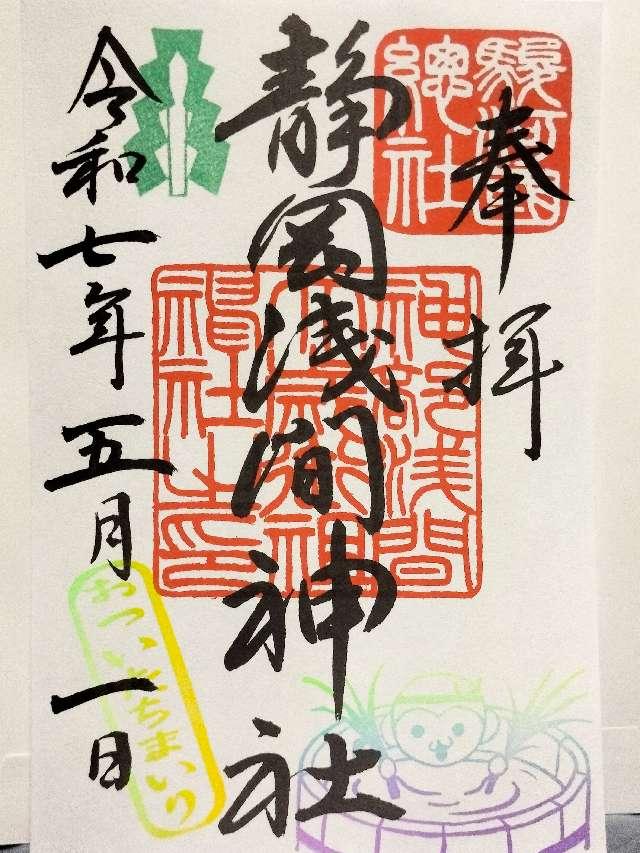 奉拝
駿河國
總社
静岡浅間神社
神部浅間
大歳御祖
神社之印
令和七年五月一日
おついたちまいり